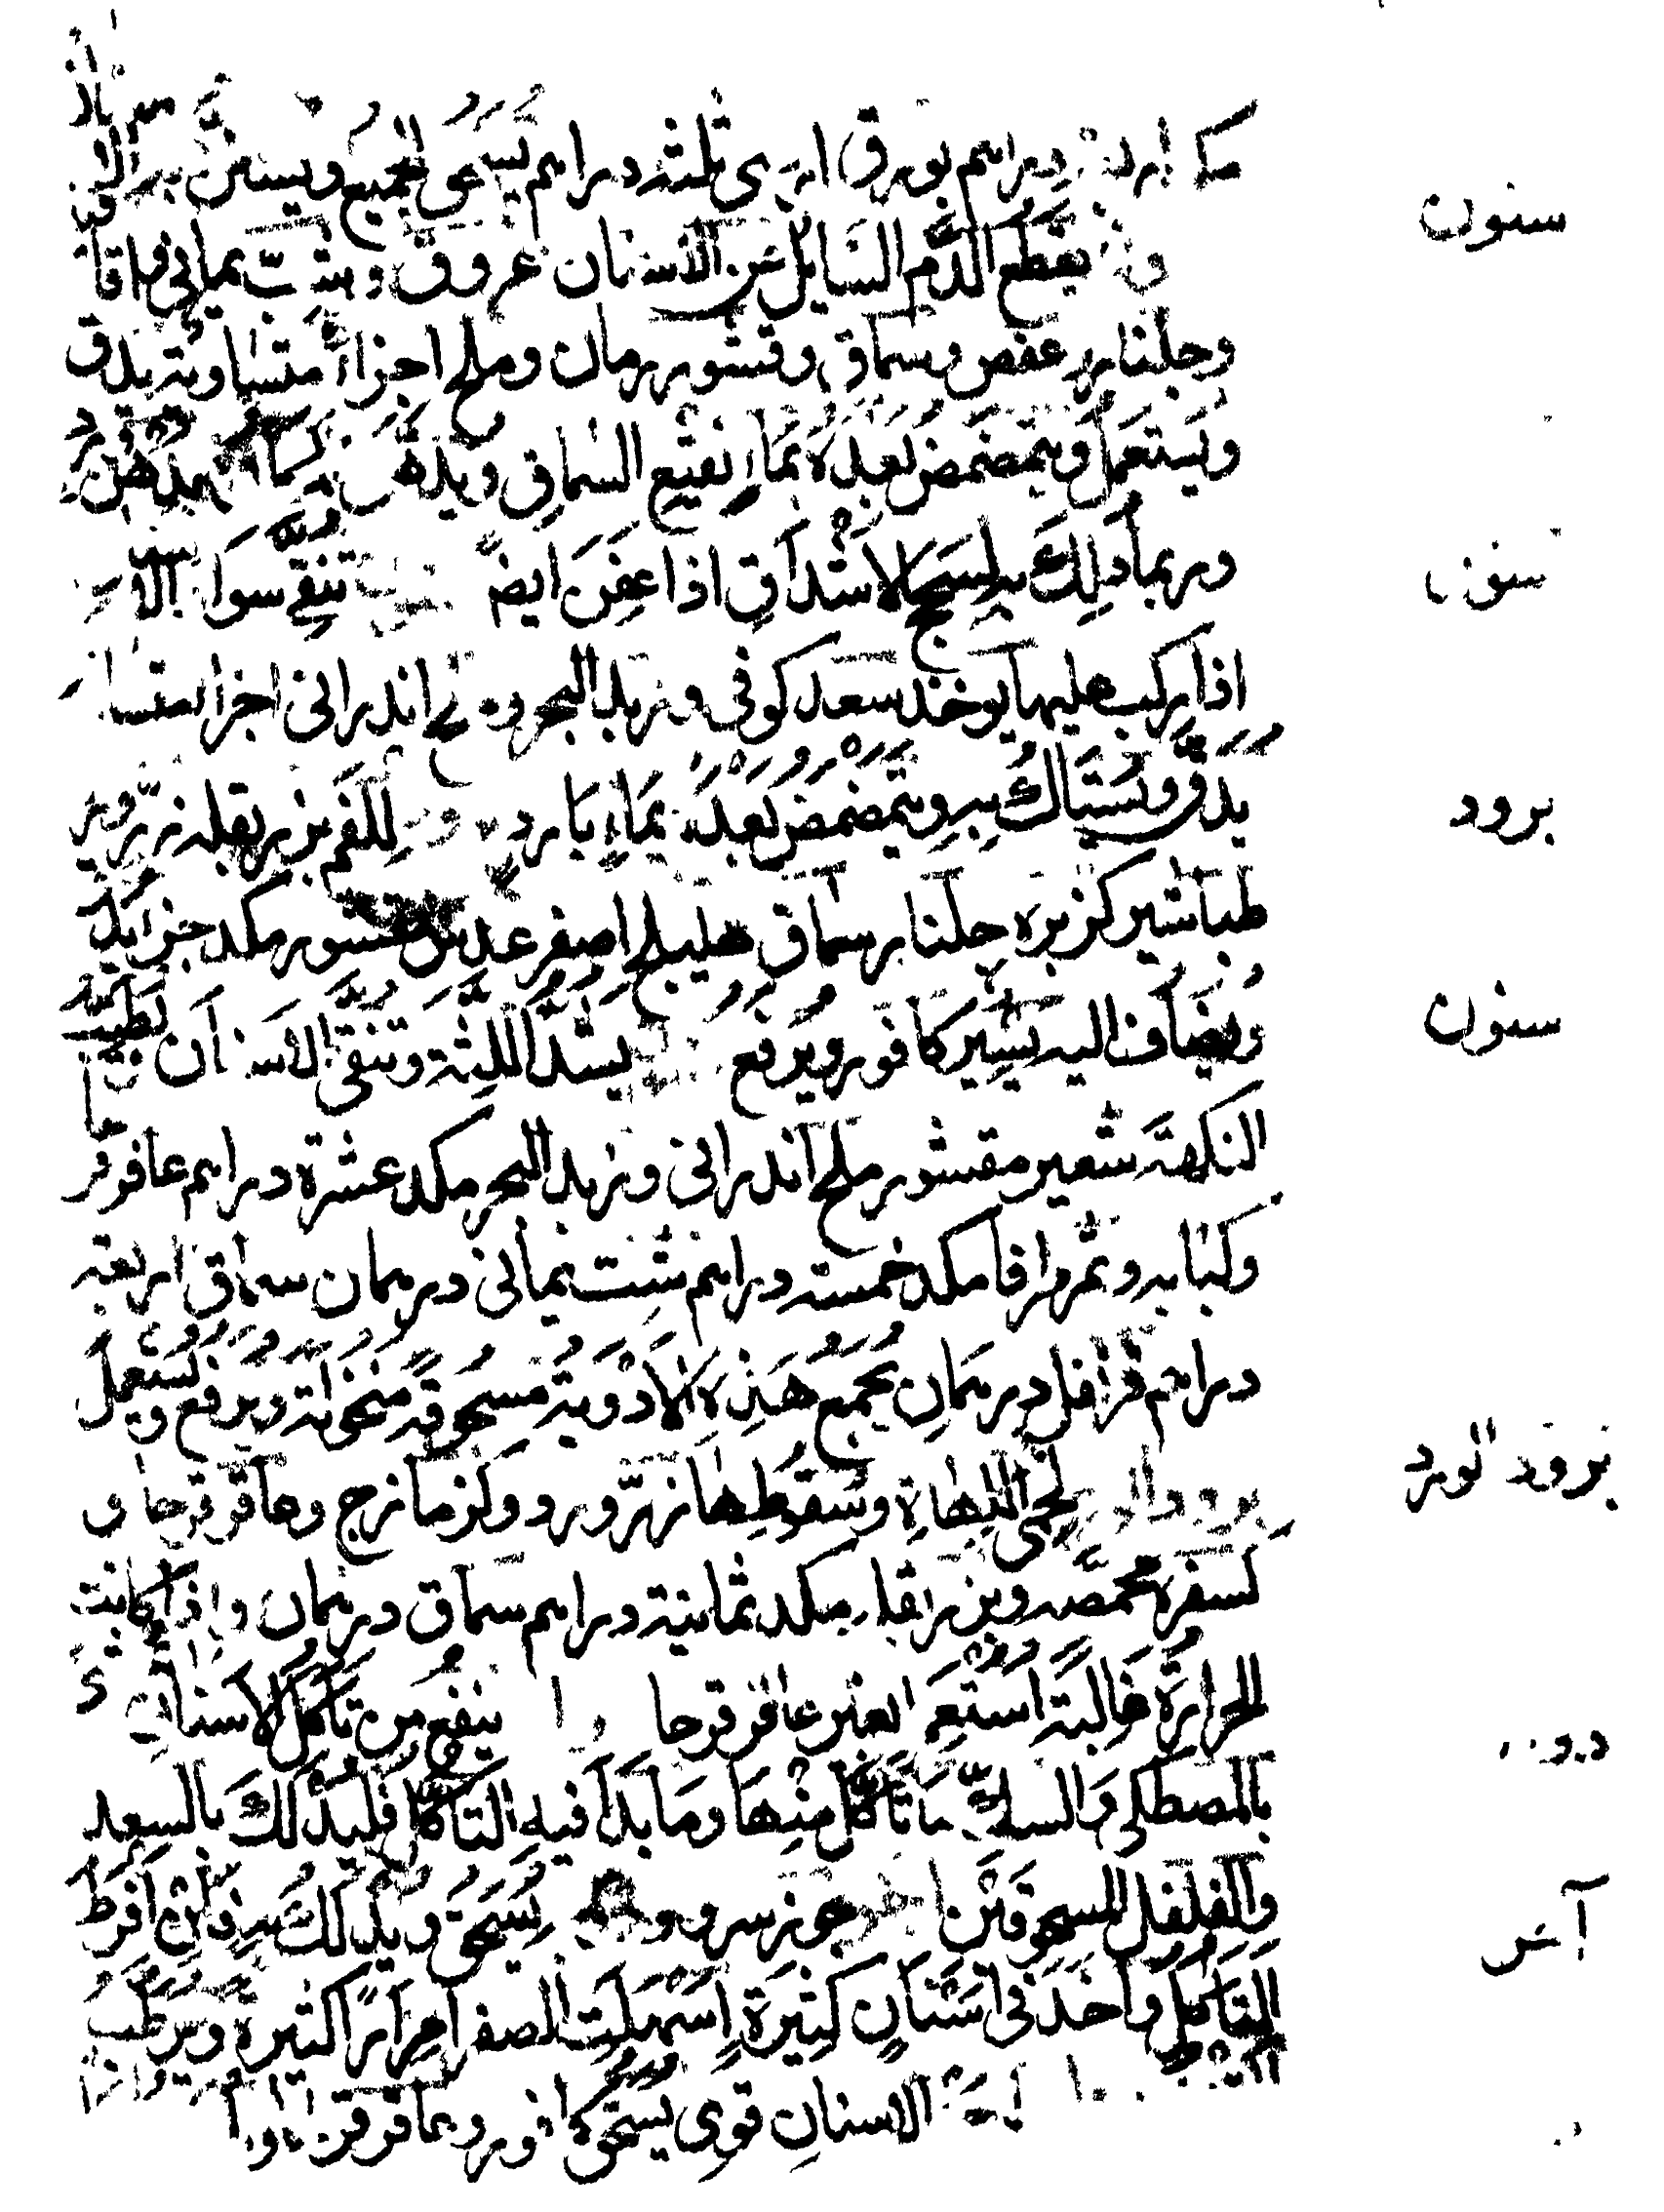 مكد اربعة دراهم بورق ارمنى ثلثة دراهم يسحق الجميع ويستن به
سنون
يقطع الدم السايل عن الاسنان عروق وشب يمانى واقاقيا
وجلنار وعفص وسماق وقشور رمان وملح اجزاء متساوية يدق
ويستعمل ويتمضمض بعده بماء نقيع السماق ويدهن بدهن ورد
وربما دلك به لسحج الاشداق اذا عفن ايضا تنقى سواد الاسنان
سنون
اذا ركب عليها يوخذ سعد كوفى وزبد البحر وملح اندرانى اجزا متساوية
يدق ويستاك به ويتمضمض بعده بماء بارد للفم بزر بقلة زر ورد
برود
طباشير كزبره جلنار سماق هليلج اصفر عدس مقشور مكد جز يدق
ويضاف اليه يسير كافور ويرفع يشد اللثة وتنقى الاسنان تطيب
سنون
النكهة شعير مقشور ملح اندرانى وزبد البحر مكد عشرة دراهم عاقرقرحا
وكبابه وثمر طرفا مكد خمسة دراهم شب يمانى درهمان سماق اربعة
دراهم قرنفل درهمان يجمع هذه الادوية مسحوقة منخولة ويرفع ويستعمل
برود الورد
لحمى اللهاة وسقوطها زر ورد وكزمازج وعاقرقرحا و
كسفرة محمصه وبزر بقله مكد ثمانية دراهم سماق درهمان واذا كانت
الحرارة غالبة استعمل بغير عاقرقرحا ينفع من تاكل الاسنان
بالمصطكى والسك ما تاكل منها وما بدا فيه التاكل فليدلك بالسعد
والفلفل المسحوقين اخر جوز سرو يسحق ويدلك به فان افرط
آخر
التاكل واخذ فى اسنان كثيرة اسهلت الصفرا مرارا كثيرة ويرطب
الاسنان قوى يسحق